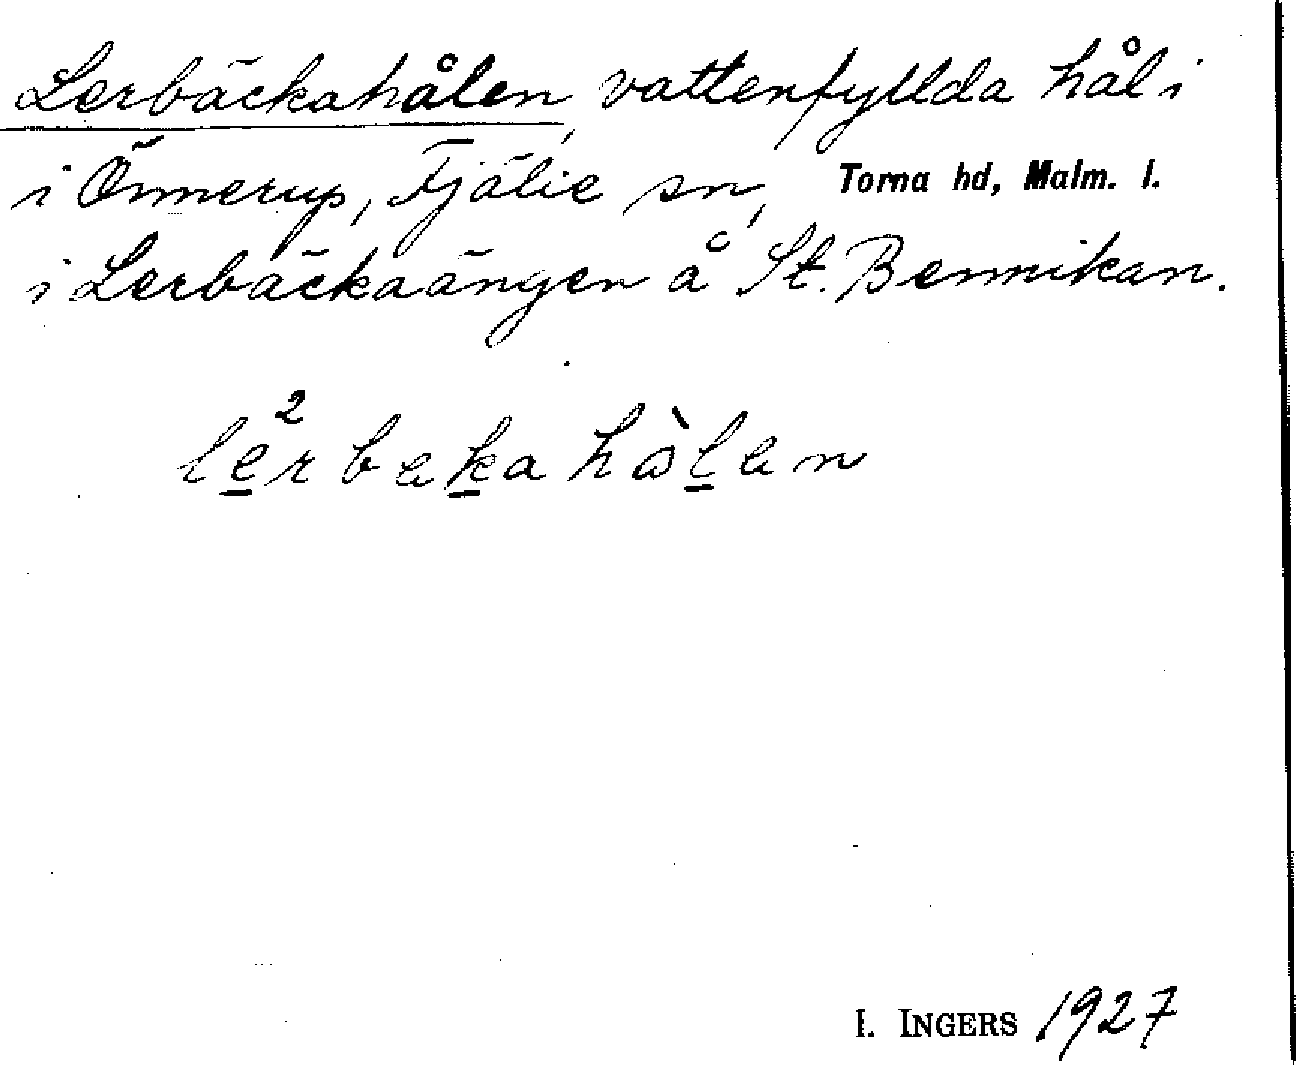 Lerbäckahålen, vattenfyllda hål i
i Önnerup, Fjälie sn, Torna hd, Malm. l.
i Lerbäckaängen å St. Bennikan.
le²rbekahòlen
I. INGERS 1927